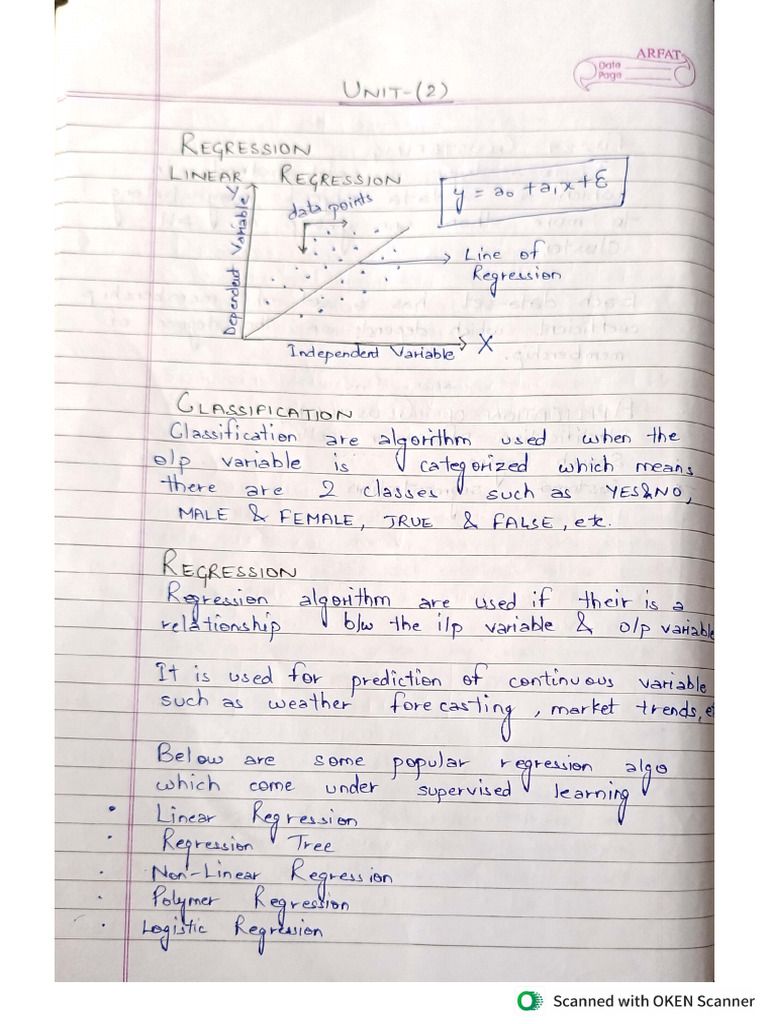 ARFAT
Date
Page
UNIT-(2)
REGRESSION
LINEAR REGRESSION
y = a₀ + a₁x + ε
Y
Dependent Variable
data points
Line of
Regression
Independent Variable
X
CLASSIFICATION
Classification are algorithm used when the
o/p variable is categorized which means
there are 2 classes such as YES&NO,
MALE & FEMALE, TRUE & FALSE, etc.
REGRESSION
Regression algorithm are used if their is a
relationship b/w the i/p variable & o/p variable
It is used for prediction of continuous variable
such as weather forecasting, market trends, et
Below are some popular regression algo
which come under supervised learning
• Linear Regression
• Regression Tree
• Non-Linear Regression
• Polymer Regression
• Logistic Regression
Scanned with OKEN Scanner